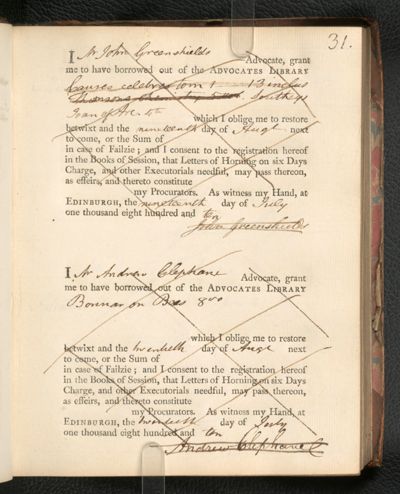 31.
I Mr John Greenshields Advocate, grant
me to have borrowed out of the ADVOCATES LIBRARY
Causes celebres tom 1 13 inclus
Southeys
Joan of Arc 4to
which I oblige me to restore
betwixt and the nineteenth day of Augt next
to come, or the Sum of
in case of Failzie; and I consent to the registration hereof
in the Books of Session, that Letters of Horning on six Days
Charge, and other Executorials needful, may pass thereon,
as effeirs, and thereto constitute
my Procurators. As witness my Hand, at
EDINBURGH, the nineteenth day of July
one thousand eight hundred and ten
John Greenshields
I Mr Andrew Clephane Advocate, grant
me to have borrowed out of the ADVOCATES LIBRARY
Bonnar on Bees 8vo
which I oblige me to restore
betwixt and the twentieth day of Augt next
to come, or the Sum of
in case of Failzie; and I consent to the registration hereof
in the Books of Session, that Letters of Horning on six Days
Charge, and other Executorials needful, may pass thereon,
as effeirs, and thereto constitute
my Procurators. As witness my Hand, at
EDINBURGH, the twentieth day of July
one thousand eight hundred and ten
Andrew Clephane